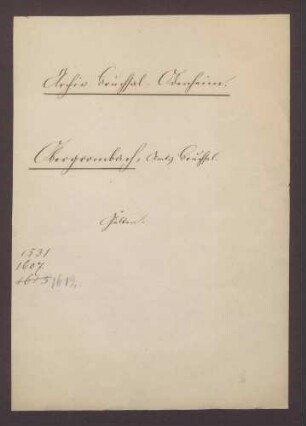 Archiv Bruchsal-Odenheim.
Obergrombach, Amts Bruchsal.
Gülten.
1531
1607
1605 1612.